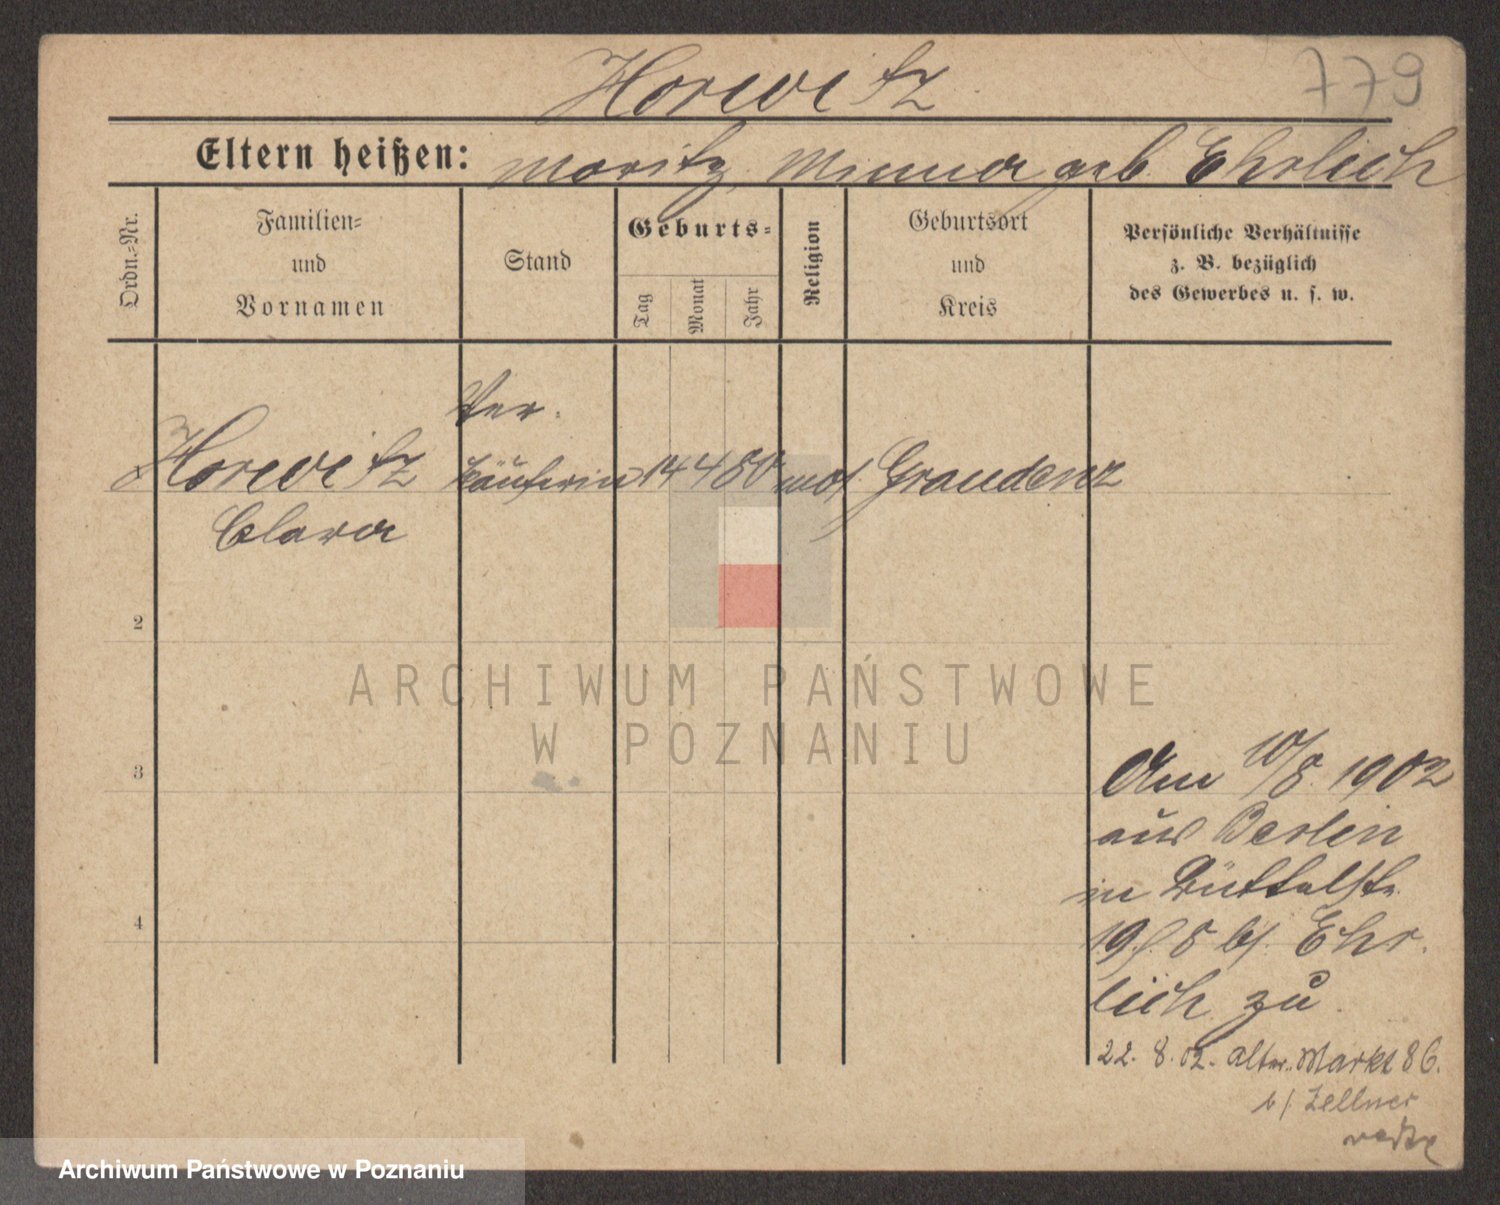 Horwitz
779
Eltern heißen: Moritz, Minna geb. Ehrlich
Ordn.-Nr.
Familien-
und
Vornamen
Stand
Geburts-
Tag
Monat
Jahr
Religion
Geburtsort
und
Kreis
Persönliche Verhältnisse
z. B. bezüglich
des Gewerbes u. s. w.
Ver-
Horwitz käuferin 14 4 80 mos. Graudenz
Clara
2
3
4
Am 10/8. 1902
aus Berlin
in
19. b/. Ehr-
lich zu
22. 8. 02. Alter Markt 86.
b/. Zellner
ARCHIWUM PAŃSTWOWE
W POZNANIU
Archiwum Państwowe w Poznaniu